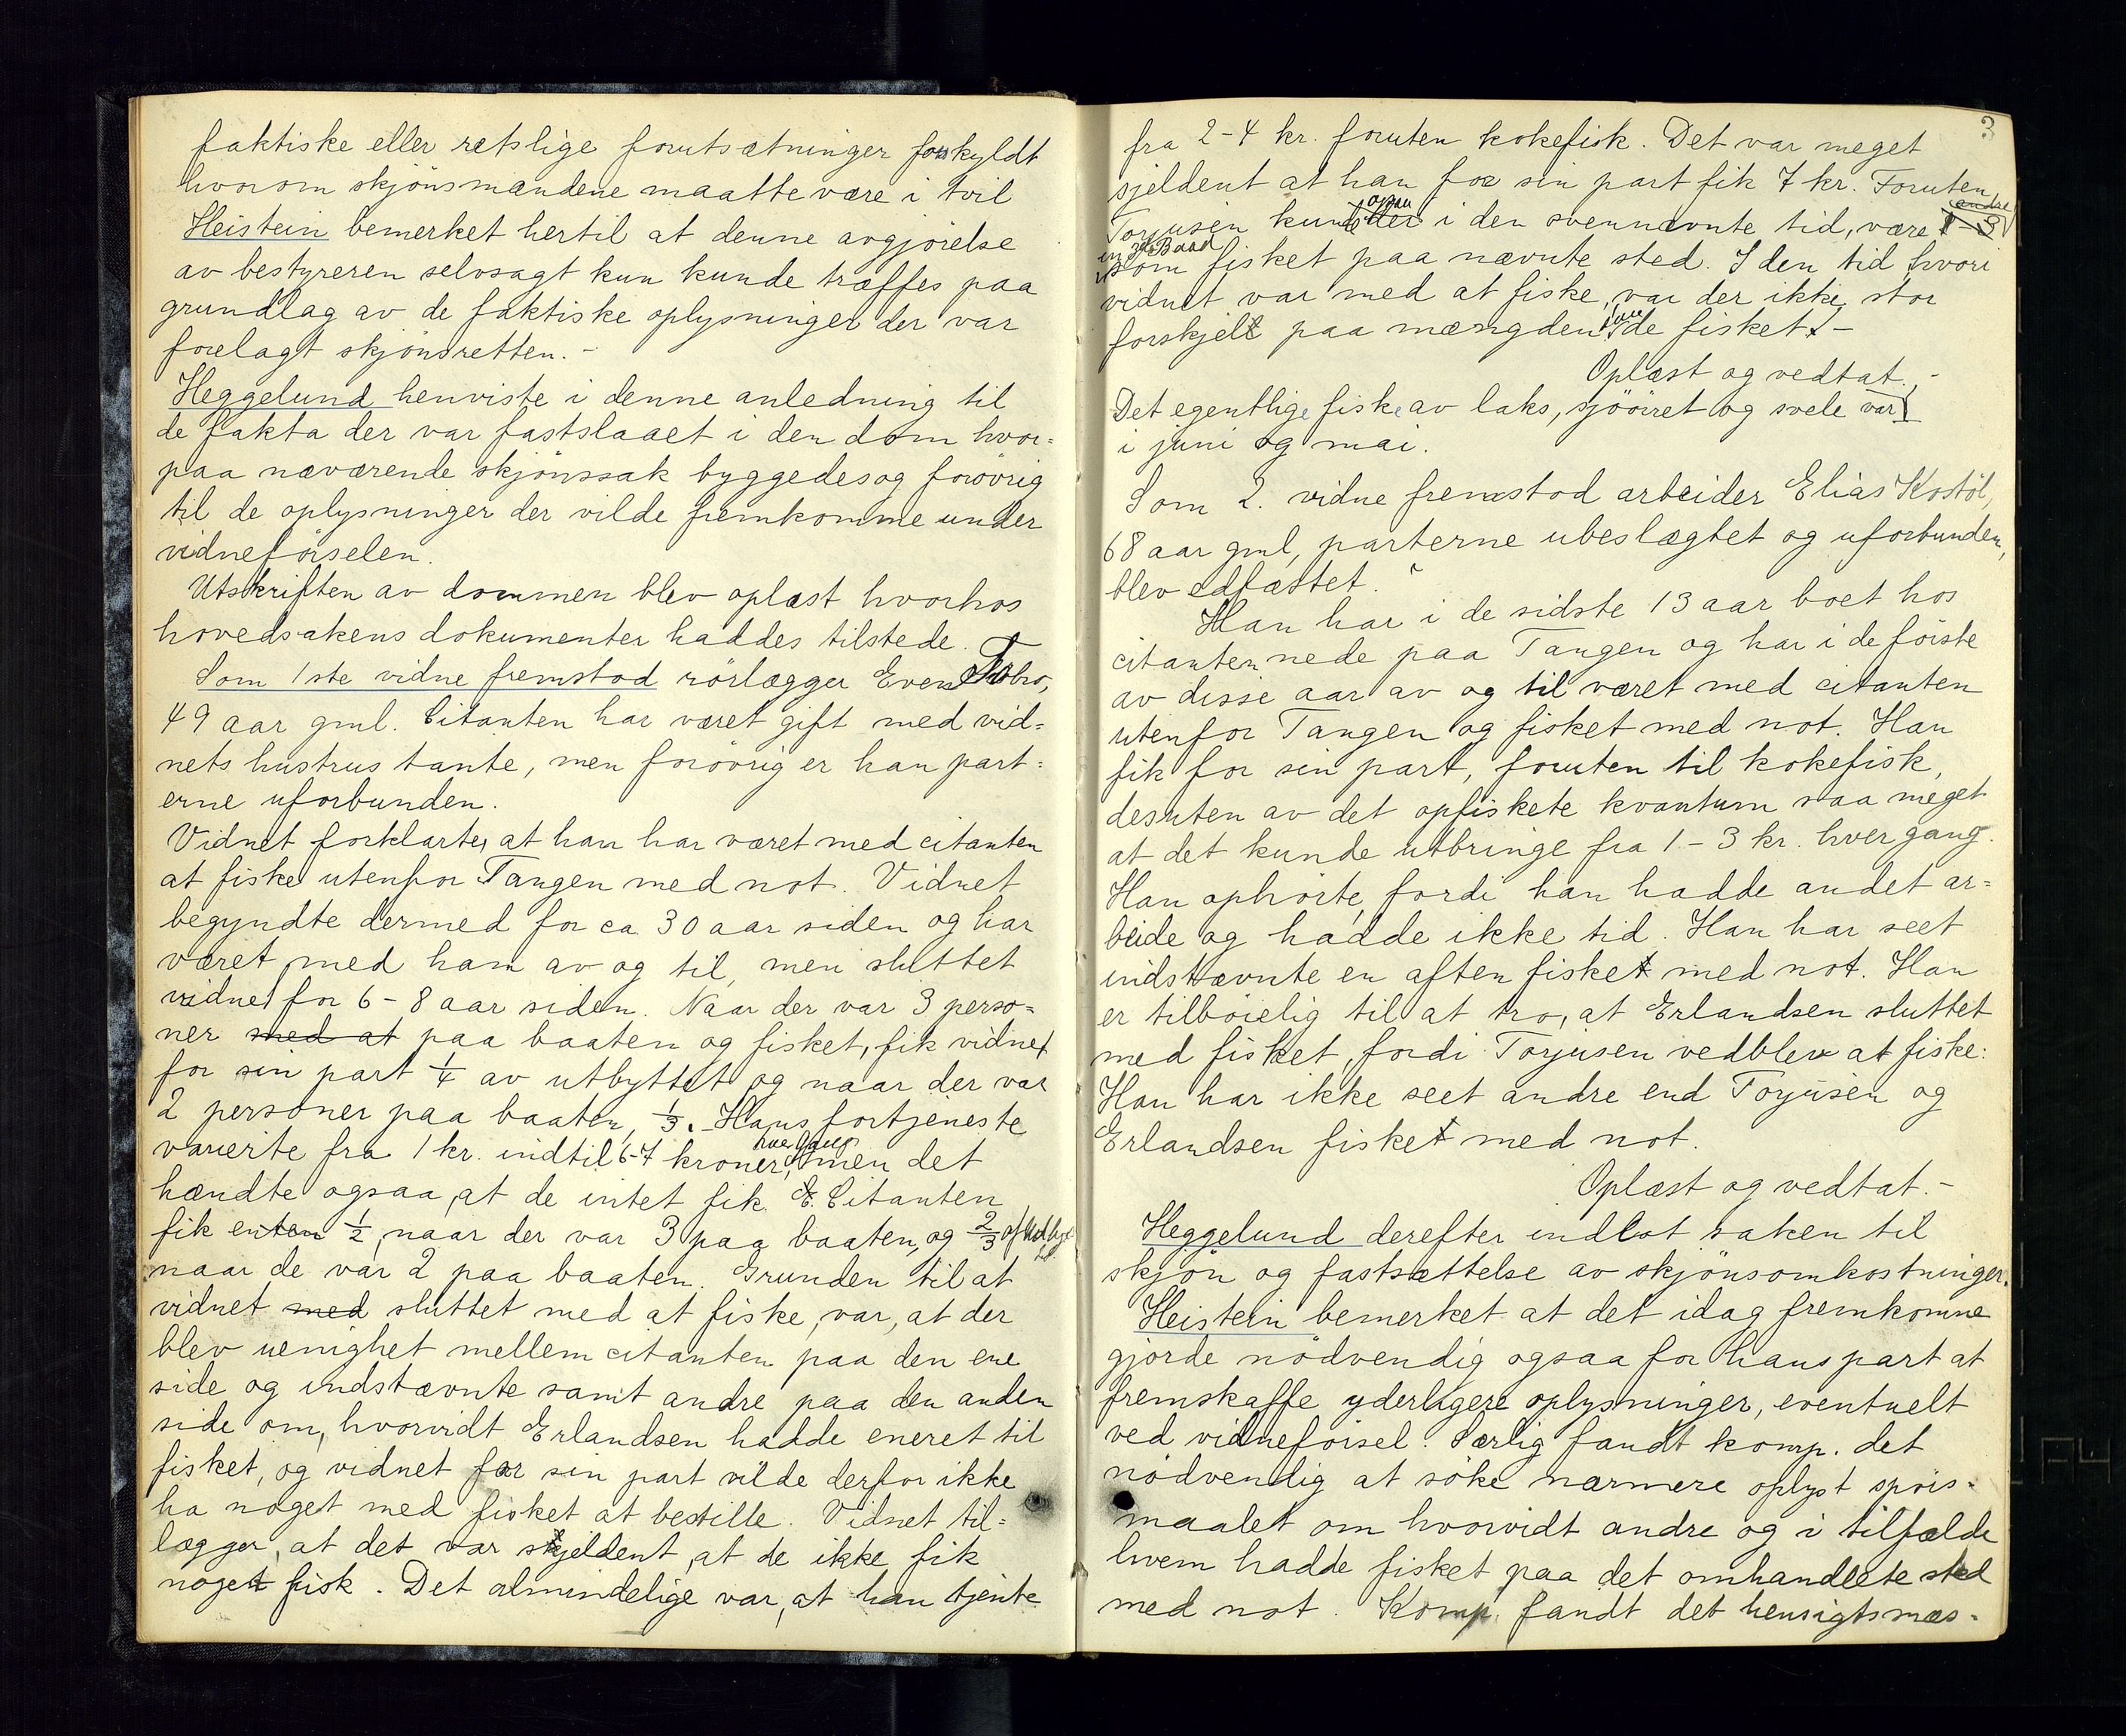 faktiske eller retslige forutsætninger forskyldt
hvorom skjönsmændene maatte være i tvil
Heistein bemerket hertil at denne avgjörelse
av bestyreren selvsagt kun kunde træffes paa
grundlag av de faktiske oplysninger der var
forelagt skjönsretten. -
Heggelund henviste i denne anledning til
de fakta der var fastslaaet i den dom hvor=
paa næværende skjönssak byggedes og forövrig
til de oplysninger der vilde fremkomme under
vidneförselen.
Utskriften av dommen blev oplæst hvorhos
hovedsakens dokumenter haddes tilstede.
Som 1ste vidne fremstod rörlægger Even
49 aar gml. Citanten har været gift med vid=
nets hustrus tante, men forövrig er han part=
erne uforbunden.
Vidnet forklarte, at han har været med citanten
at fiske utenfor Tangen med not. Vidnet
begyndte dermed for ca 30 aar siden og har
været med ham av og til, men sluttet
vidnet for 6-8 aar siden. Naar der var 3 perso=
ner med at paa baaten og fisket, fik vidnet
for sin part 1/4 av utbyttet og naar der var
2 personer paa baaten, 1/3. Hans fortjeneste
varierte fra 1 kr. indtil 6-7 kroner, hver gang men det
hændte ogsaa, at de intet fik. Citanten
fik enten 1/2, naar der var 3 paa baaten, og 2/3
naar de var 2 paa baaten. Grunden til at
vidnet med sluttet med at fiske, var, at der
blev uenighet mellem citanten paa den ene
side og indstævnte samt andre paa den anden
side om, hvorvidt Erlandsen hadde eneret til
fisket, og vidnet for sin part vilde derfor ikke
ha noget med fisket at bestille. Vidnet til=
lægger, at det var sjeldent, at de ikke fik
noget fisk. Det almindelige var, at han tjente
3
fra 2-4 kr. foruten kokefisk. Det var meget
sjeldent at han for sin part fik 7 kr. Foruten
Torjusen kunde der i den ovennævnte tid, være andre
en 3die Baad
som fisket paa nævnte sted. I den tid hvori
vidnet var med at fiske, var der ikke stor
forskjel paa mængden de fisket. -
Oplæst og vedtat. -
Det egentlige fiske av laks, sjöörret og svele var
i juni og mai.
Som 2. vidne fremstod arbeider Elias Kostöl,
68 aar gml, parterne ubeslægtet og uforbunden,
blev edfæstet.
Han har i de sidste 13 aar boet hos
citanten nede paa Tangen og har i de förste
av disse aar av og til været med citanten
utenfor Tangen og fisket med not. Han
fik for sin part, foruten til kokefisk,
desuten av det opfiskete kvantum saa meget
at det kunde utbringe fra 1-3 kr. hver gang.
Han ophörte, fordi han hadde andet ar=
beide og hadde ikke tid. Han har seet
indstævnte en aften fisket med not. Han
er tilböielig til at tro, at Erlandsen sluttet
med fisket, fordi Torjusen vedblev at fiske:
Han har ikke seet andre end Torjusen og
Erlandsen fisket med not.
Oplæst og vedtat. -
Heggelund derefter indlot saken til
skjön og fastsættelse av skjönsomkostninger.
Heistein bemerket at det idag fremkomne
gjorde nödvendig ogsaa for hans part at
fremskaffe yderligere oplysninger, eventuelt
ved vidneförsel. Særlig fandt komp. det
nödvendig at söke nærmere oplyst spörs=
maalet om hvorvidt andre og i tilfælde
hvem hadde fisket paa det omhandlete sted
med not. Komp. fandt det hensigtsmæs=